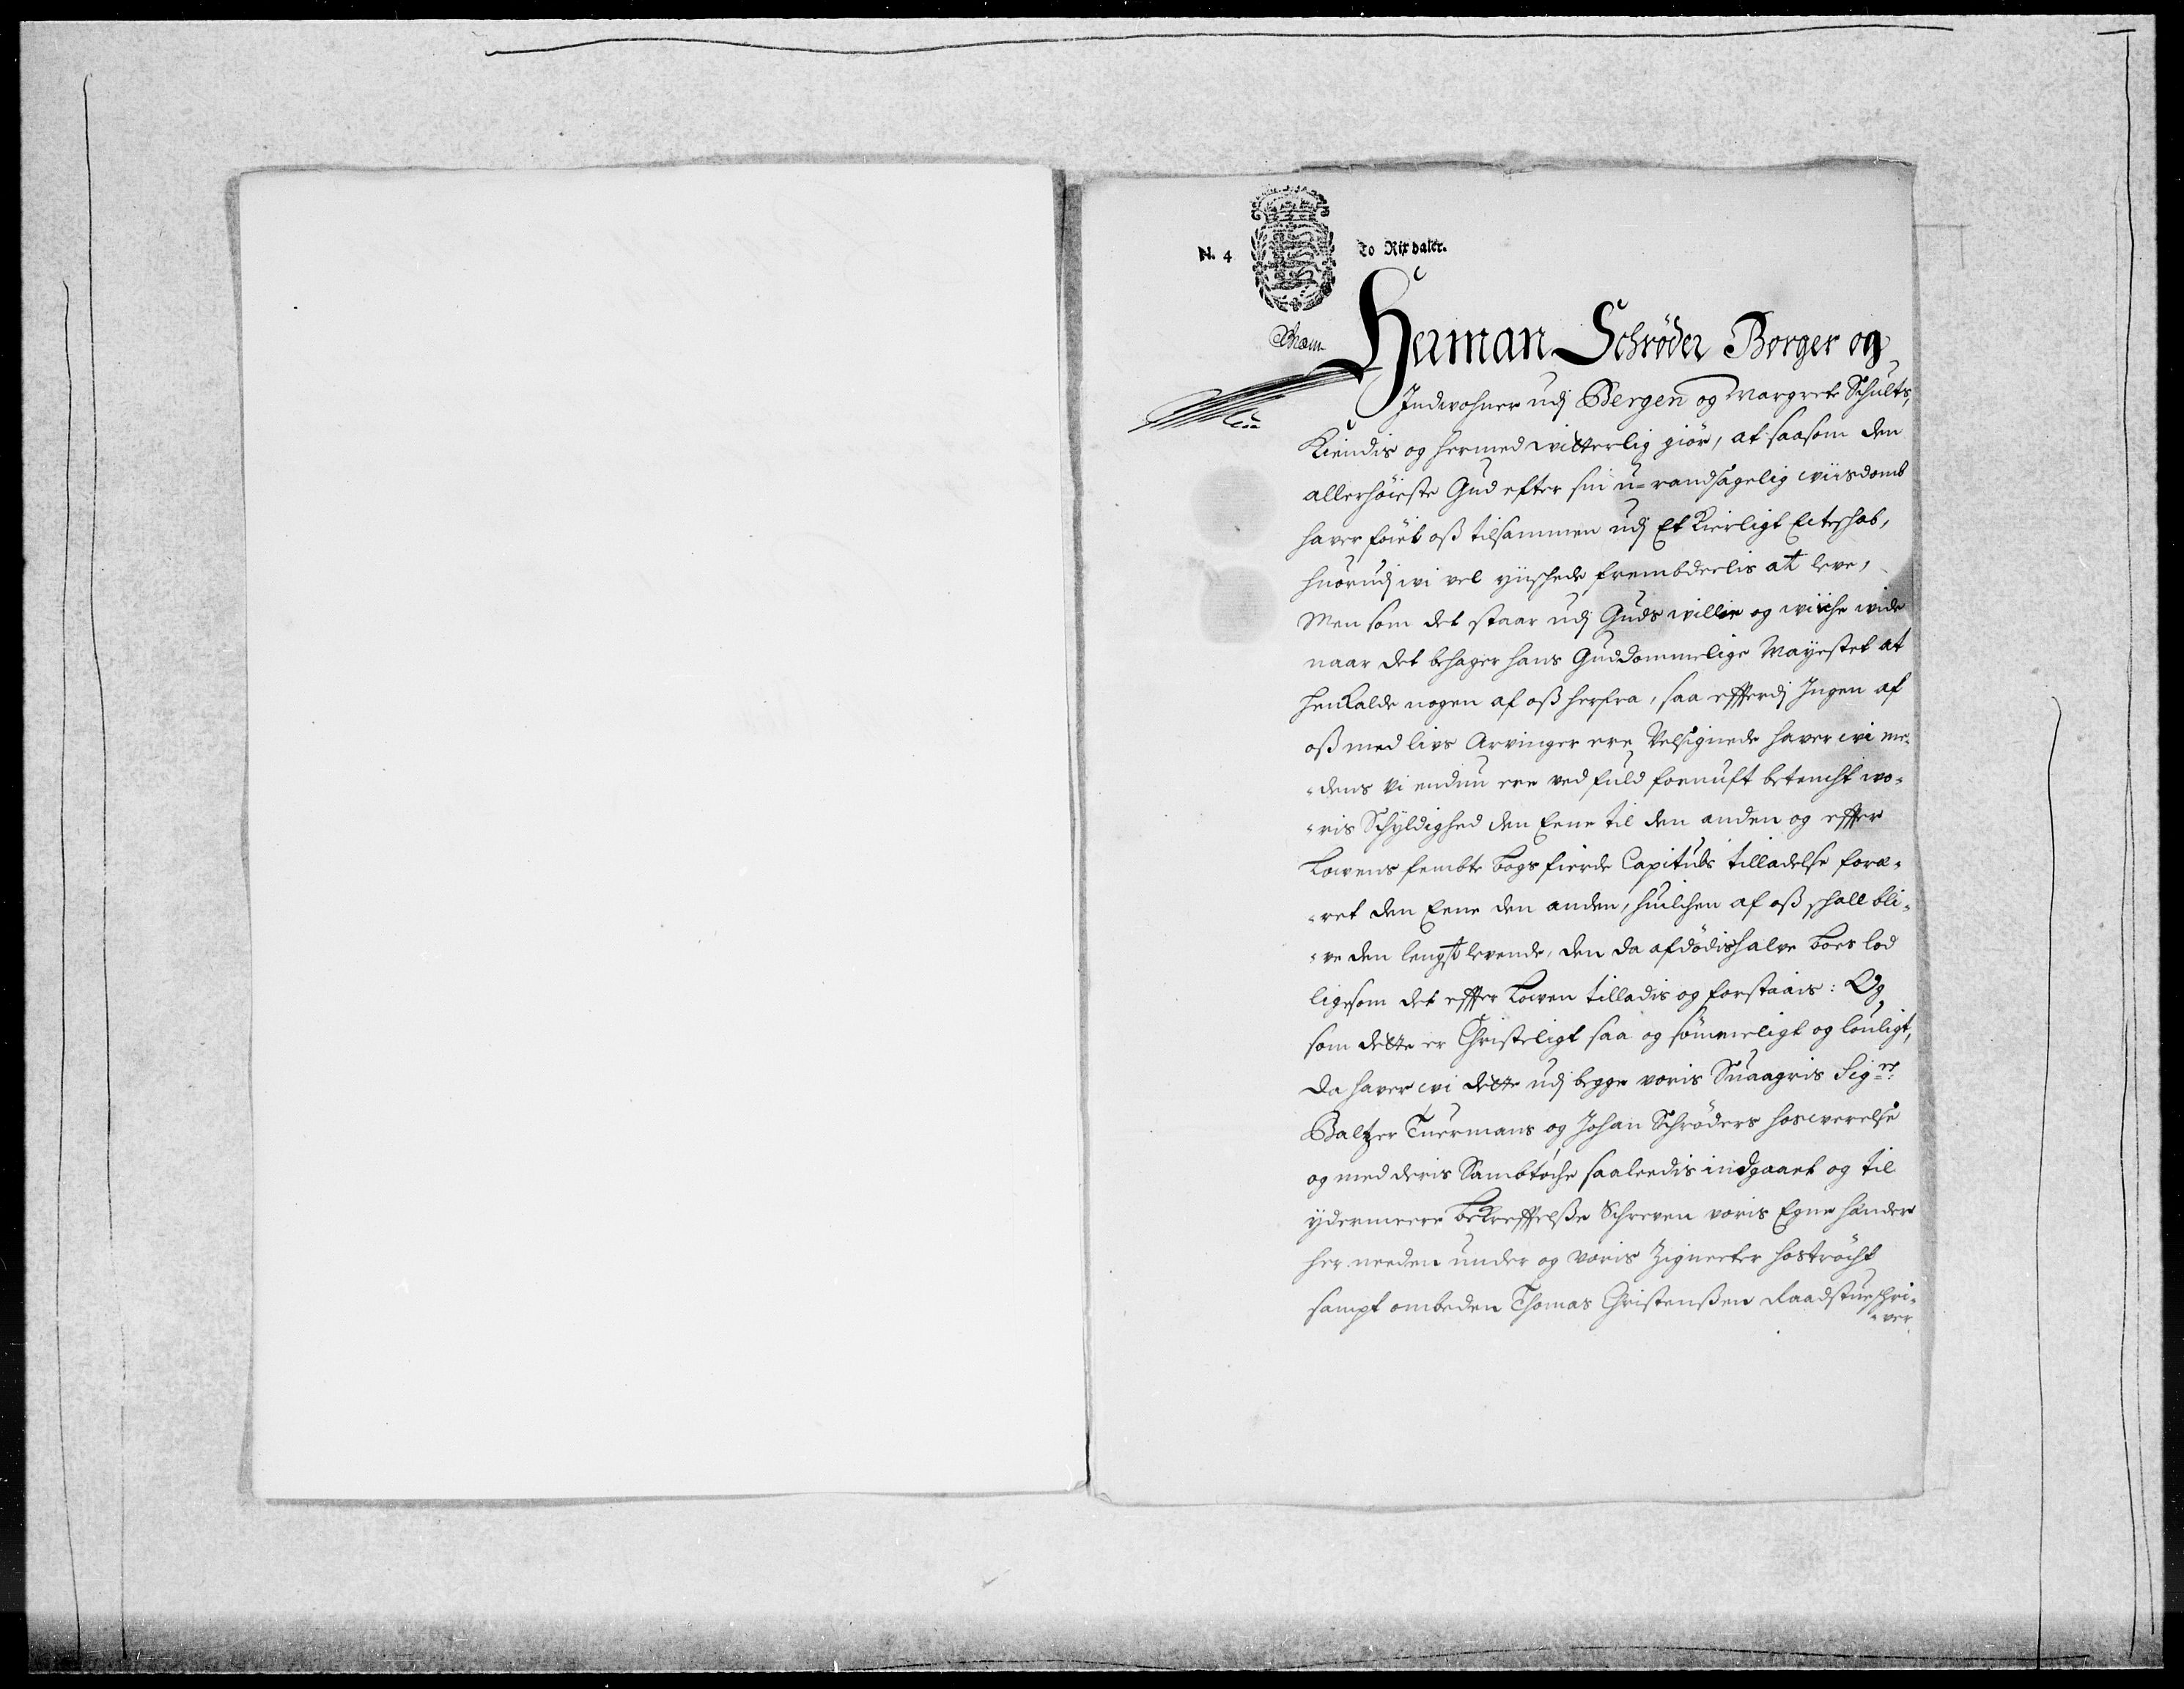 N. 4
To Rixdaler.
Herman Schrøder Borger og
Indwohner udj Bergen og Margrete Schults,
Kiendis og hermed witterlig giör, at saasom den
allerhöieste Gud efter sin u-randsagelig wiisdomb
haver föiet oß tilsammen udj Et Kierligt Ecteschab,
huorudj wi vel ynschede frembdeelis at leve,
Men som det staar udj Guds willie og wi iche wide
naar det behager hans Guddommelige Mayestet at
henkalde nogen af oß herfra, saa efftterdj Ingen af
oß med livs Arvinger ere Velsignede haver wi me-
-dens vi endnu ere ved fuld fornuft betencht wo-
-ris Schyldighed den Eene til den anden og effter
Lowens fembte bogs fierde Capituls tilladelse foræ-
-ret den Eene den anden, huilchen af oß schall bli-
-ve den lengst levende, den da afdödis halve boes lod
ligesom det effter Lowen tilladis og forstaais: Og
som dette er Christeligt saa og sömmeligt og louligt,
da haver wi dette udj begge voris Suaagris Sigrs:
Baltzer Tuermans og Johan Schröders hoswerelse
og med deris Sambtöche saaleedis indgaaet og til
ydermeere bekrefftelße Schreven voris Egne hænder
her needen under og voris Zigneeter hoströcht
sampt ombeden Thomas Christenßen Raadstueschri-
-ver